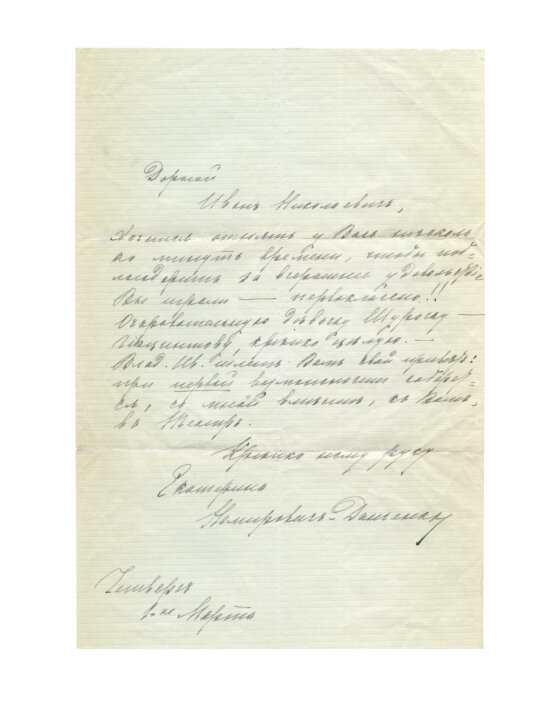 Дорогой
Иванъ Николаевичъ,
Хочется отнять у Васъ несколь
ко минутъ времени, чтобы поб-
лагодарить за вчерашнее удовольствіе
Вы играли — первоклассно!!
Очаровательную дѣвочку Шурочку —
крѣпко цѣлую. —
Влад. Ив. шлетъ Вамъ свой привѣтъ:
при первой возможности соберет-
ся, со мной вмѣстѣ, къ Вамъ
въ Театръ.
Крѣпко жму руку
Екатерина
Немировичъ-Данченко
Четвергъ
1-ое Марта